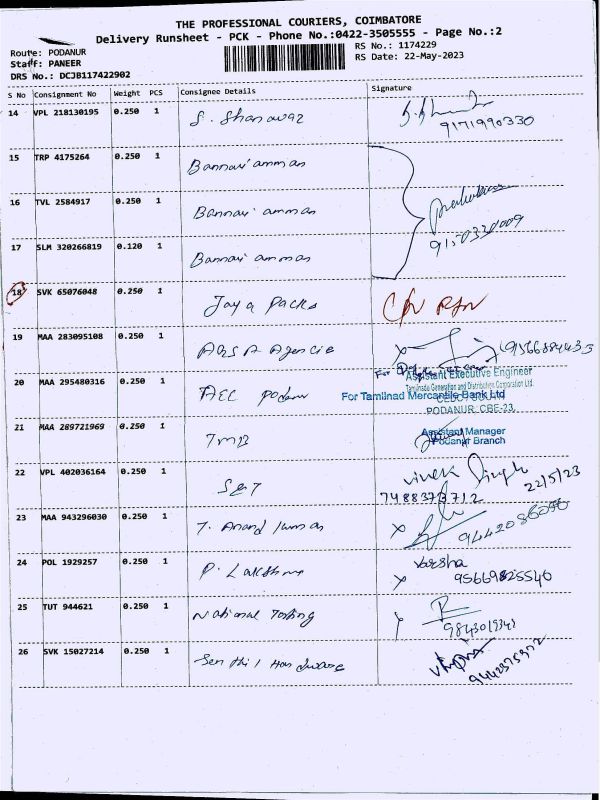 THE PROFESSIONAL COURIERS, COIMBATORE
Delivery Runsheet - PCK - Phone No.:0422-3505555 - Page No.:2
Route: PODANUR
RS No.: 1174229
Staff: PANEER
RS Date: 22-May-2023
DRS No.: DCJB117422902
S No Consignment No Weight PCS Consignee Details Signature
14 VPL 218130195 0.250 1 S. Shanavaz
9171990330
15 TRP 4175264 0.250 1 Bannari amman
16 TVL 2584917 0.250 1 Bannari amman
9150330009
17 SLM 320266819 0.120 1 Bannari amman
18 SVK 65076048 0.250 1 Jaya Packs C/N RTN
19 MAA 283095108 0.250 1 Agencie
For
Assistant Executive Engineer
Tamilnadu Generation and Distribution Corporation Ltd.
20 MAA 295480316 0.250 1 AEE Podanur
For Tamilnad Mercantile Bank Ltd
PODANUR, CBE-23.
21 MAA 289721969 0.250 1 TMB
Assistant Manager
Podanur Branch
22 VPL 402036164 0.250 1 SET Vivek Singh
7488373712 22/5/23
23 MAA 943296030 0.250 1 T. Anand kumar X
24 POL 1929257 0.250 1 P. Lakshmi Varsha
X
25 TUT 944621 0.250 1 National Testing
26 SVK 15027214 0.250 1 Senthil Hardware
9442375372